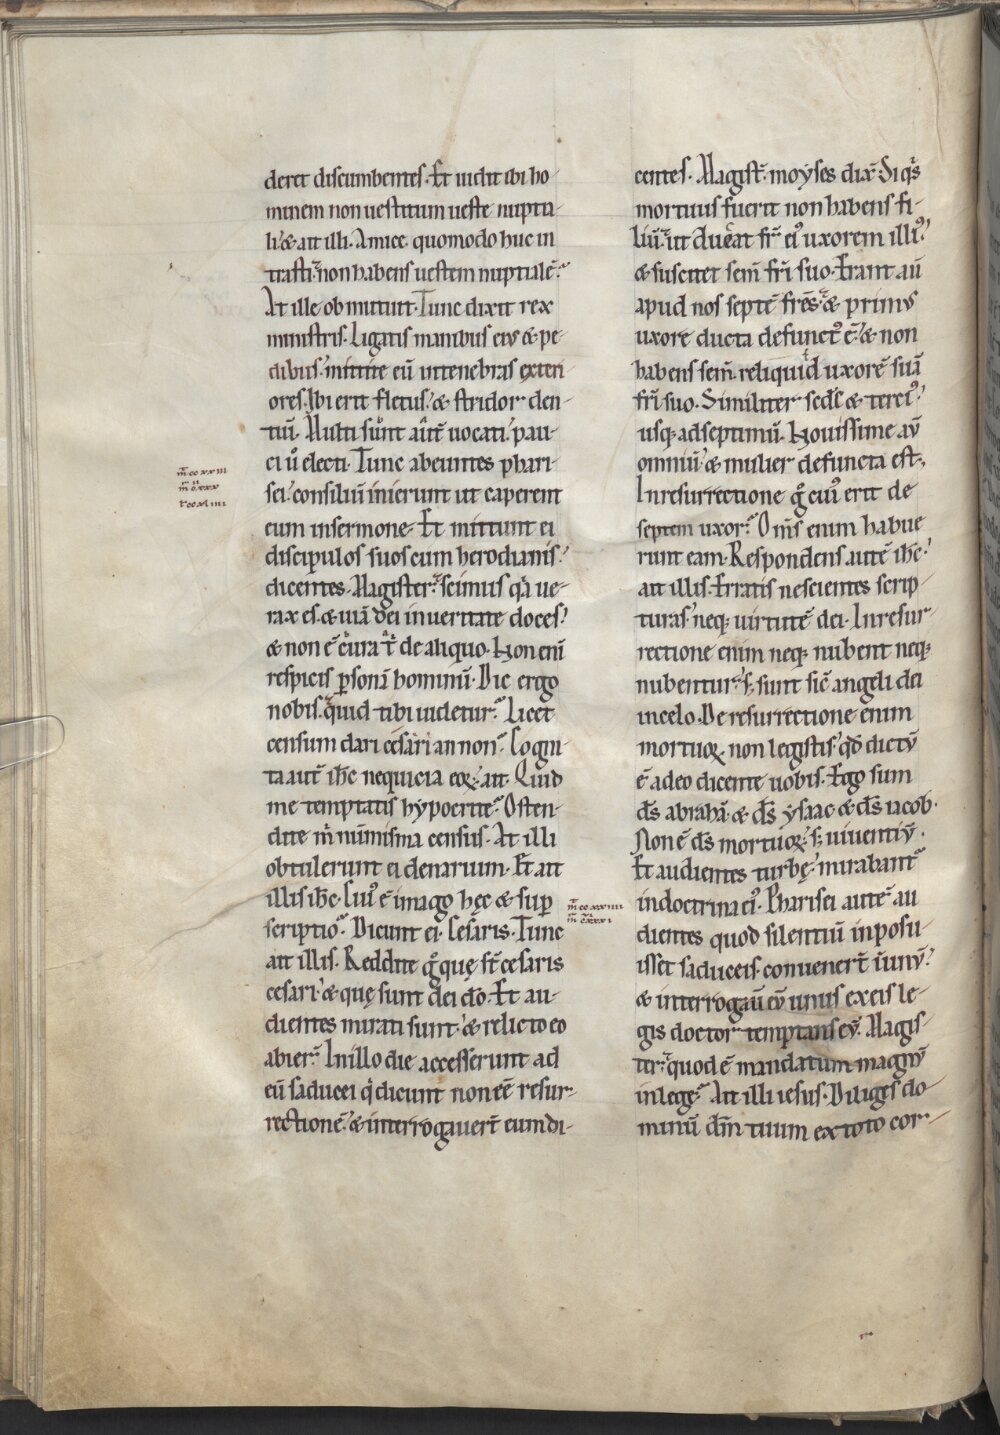 deret discumbentes. Et uidit ibi ho-
minem non uestitum ueste nuptia-
li. & ait illi. Amice quomodo huc in
trasti. non habens uestem nuptialē?
At ille obmutuit. Tunc dixit rex
ministris. Ligatis manibus eius & pe-
dibus. mittite eū in tenebras exteri
ores. Ibi erit fletus. & stridor den-
tiū. Multi sunt aut̄ uocati. pau-
ci u̅ electi. Tunc abeuntes phari-
sei. consiliū inierunt ut caperent
eum insermone. Et mittunt ei
discipulos suos cum herodianis.
dicentes. Magister. scimus q̄a ue-
rax es. & uiā dei in ueritate doces.
& non ē cura t̄ de aliquo. Non eni
respicis p̱sonā hominū. Dic ergo
nobis. quid tibi uidetur? Licet
censum dari cesari an non? Cogni-
ta aut̄ ih̄c nequicia eoꝝ. ait. Quid
me temptatis hypocrite? Osten-
dite m̄ numisma census. At illi
obtulerunt ei denarium. Et ait
illis ih̄c. Cuiꝰ ē imago hęc & sup̱
scriptio? Dicunt ei. Cesaris. Tunc
ait illis. Reddite g̊ quę st̄ cesaris
cesari. & quę sunt dei dō. Et au-
dientes mirati sunt. & relicto eo
abier̄. In illo die accesserunt ad
eū saducei q̇ dicunt non eē resur-
rectionē. & interrogauert̄ eum di-
centes. Magist̄. moyses dix̄. Si qͥs
mortuus fuerit non habens fi-
liū. ut ducat fr̄ eiꝰ uxorem illiꝰ.
& suscitet sem̄ fr̄i suo. Erant aū
apud nos septē fr̄es. & primus
uxore ducta defunctꝰ ē. & non
habens sem̄. reliquid uxorē suā
fr̄i suo. Similiter sedc̄ & terciꝰ.
usq; ad septimū. Nouissime aū
omniū & mulier defuncta est.
In resurrectione g̊ cuiꝰ erit de
septem uxor? Om̄s enim habue
runt eam. Respondens autē ih̄c.
ait illis. Erratis nescientes scrip-
turas. neq; uirtutē dei. In resur-
rectione enim neq; nubent neq;
nubentur. s; sunt sic̄ angeli dei
in celo. De resurrectione enim
mortuoꝝ. non legistis qd̄ dictū
ē a deo dicente uobis. Ego sum
ds̄ abrahā & ds̄ ysaac & ds̄ iacob.
Non ē ds̄ mortuoꝝ. s; uiuentiū.
Et audientes turbę. mirabant̄
in doctrina eiꝰ. Pharisei autē au
dientes quod silentiū inposu-
isset saduceis. conuenert̄ in unū.
& interrogau̅ eū unus ex eis le-
gis doctor temptans eū. Magis-
ter. quod ē mandatum magnū
in lege? Ait illi iesus. Diliges do-
minū dm̄ tuum ex toto cor-